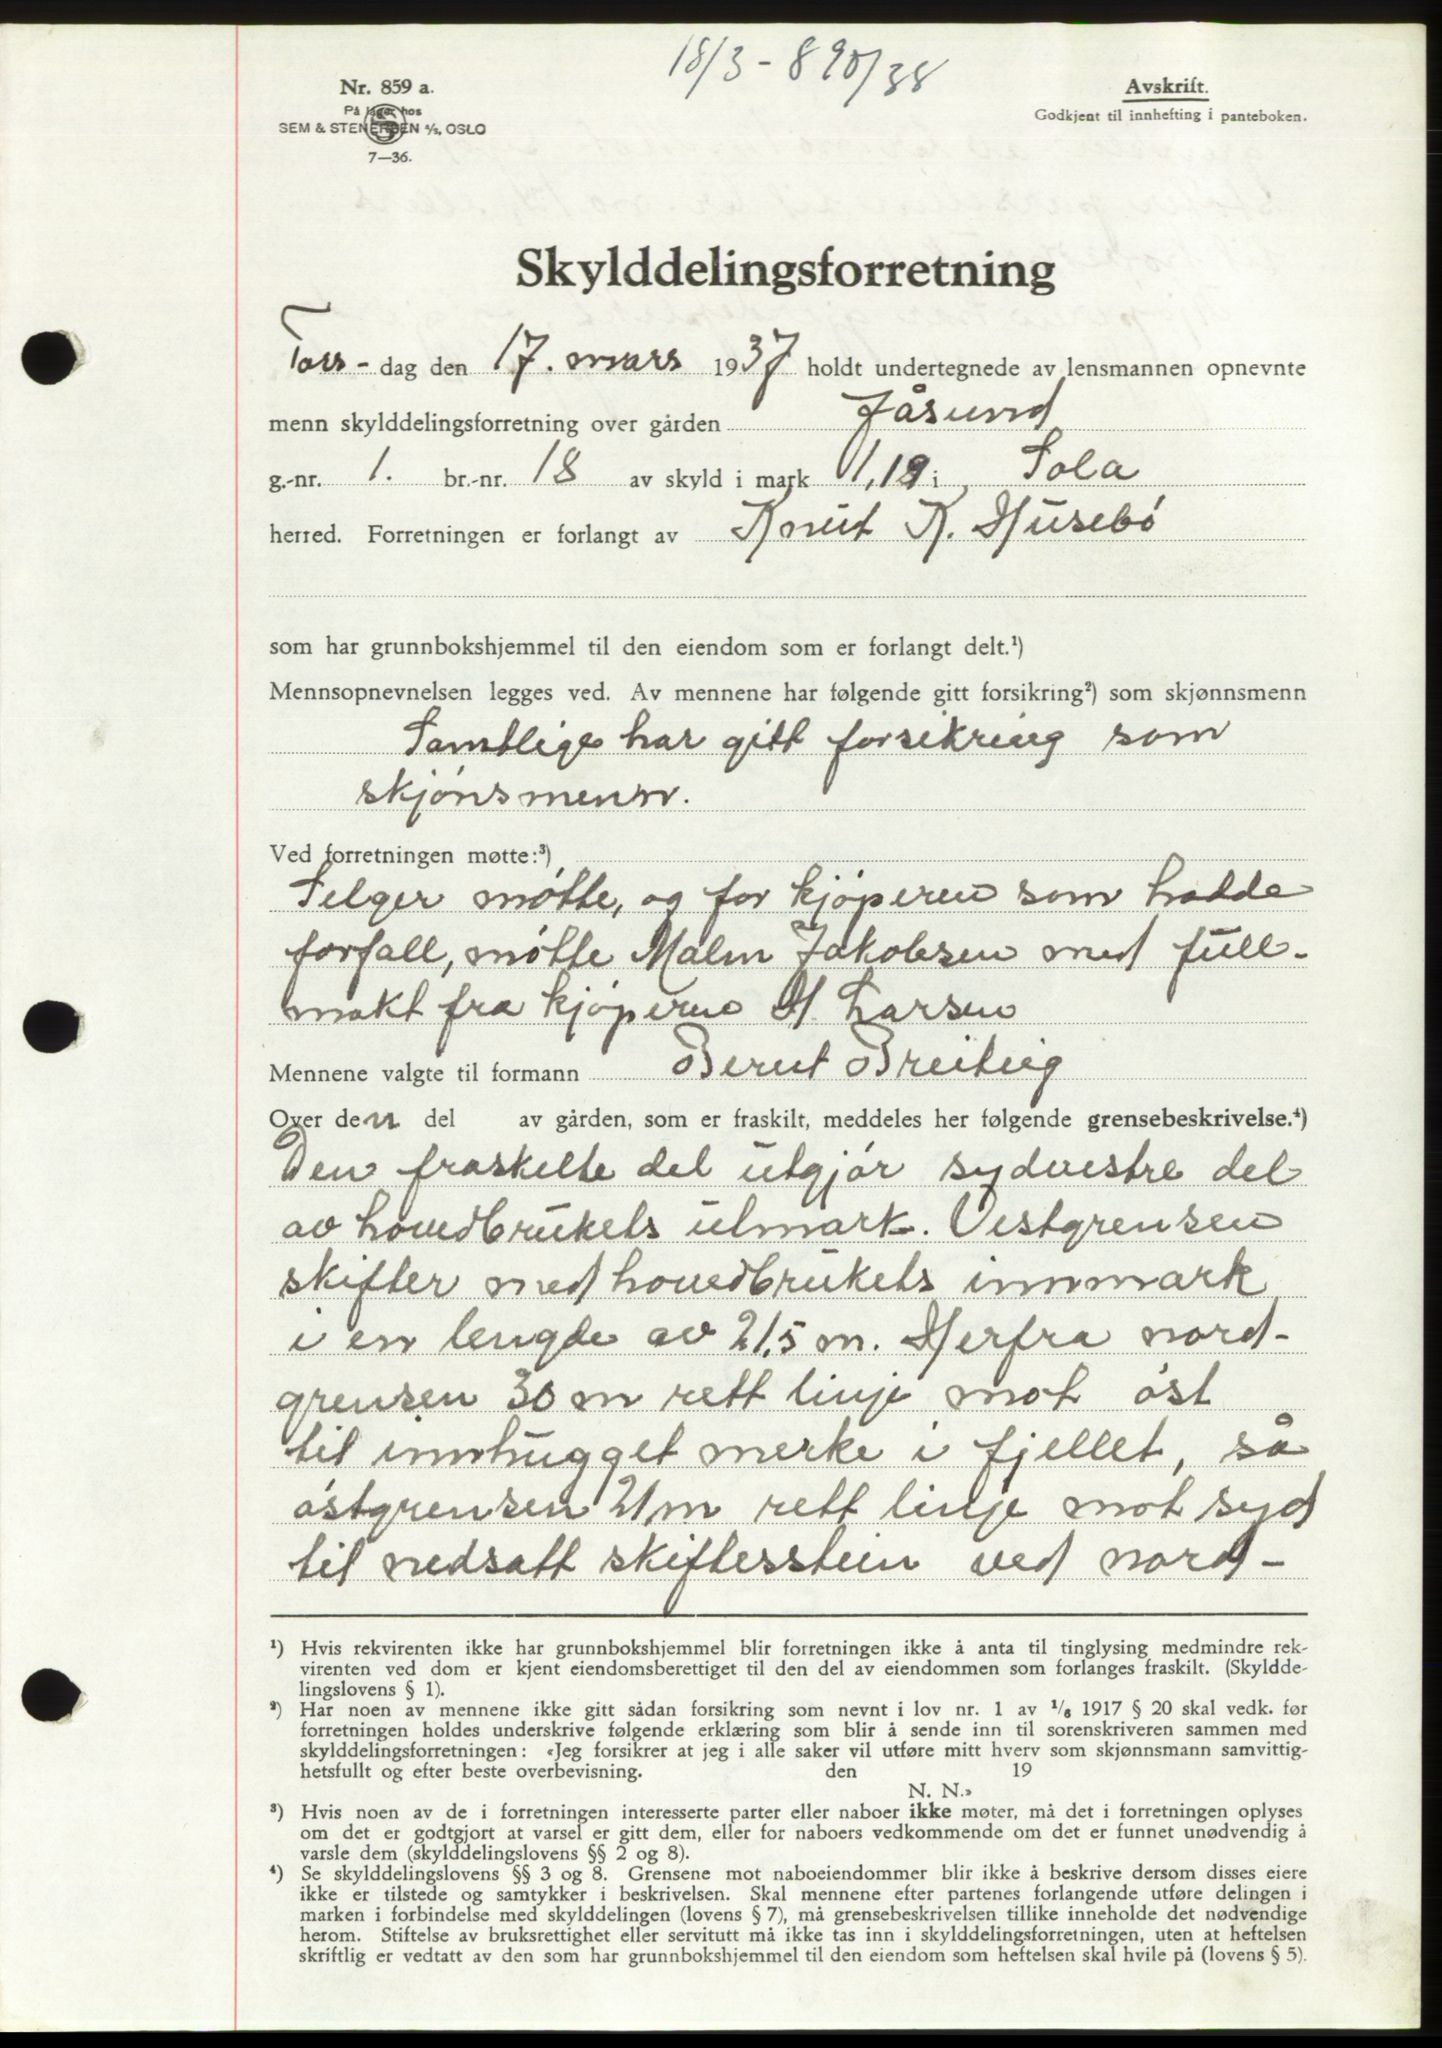 18/3 - 890/38
Nr. 859 a.
På lager hos
SEM & STENERSEN A/S, OSLO
7—36.
Avskrift.
Godkjent til innhefting i panteboken.
Skylddelingsforretning
Tors- dag den 17. mars 1937 holdt undertegnede av lensmannen opnevnte
menn skylddelingsforretning over gården Jåsund
g.-nr. 1. br.-nr. 18 av skyld i mark 1,19 i Sola
herred. Forretningen er forlangt av Knut K. Husebó
som har grunnbokshjemmel til den eiendom som er forlangt delt.¹)
Mennsopnevnelsen legges ved. Av mennene har følgende gitt forsikring²) som skjønnsmenn
Samtlige har gitt forsikring som
skjónsmenn.
Ved forretningen møtte:³)
Selger mótte, og for kjóperen som hadde
forfall, mótte Malm Jakobsen med full-
makt fra kjóperen H Larsen
Mennene valgte til formann Bernt Breivig
Over den del av gården, som er fraskilt, meddeles her følgende grensebeskrivelse.⁴)
Den fraskilte del utgjór sydvestre del
av hovedbrukets utmark. Vestgrensen
skifter med hovedbrukets innmark
i en lengde av 21,5 m. Herfra nord-
grensen 30 m rett linje mot óst
til innhugget merke i fjellet, så
óstgrensen 21 m rett linje mot syd
til nedsatt skiftesstein ved nord-
¹) Hvis rekvirenten ikke har grunnbokshjemmel blir forretningen ikke å anta til tinglysing medmindre rek-
virenten ved dom er kjent eiendomsberettiget til den del av eiendommen som forlanges fraskilt. (Skyldde-
lingslovens § 1).
²) Har noen av mennene ikke gitt sådan forsikring som nevnt i lov nr. 1 av 1/6 1917 § 20 skal vedk. før
forretningen holdes underskrive følgende erklæring som blir å sende inn til sorenskriveren sammen med
skylddelingsforretningen: «Jeg forsikrer at jeg i alle saker vil utføre mitt hverv som skjønnsmann samvittig-
hetsfullt og efter beste overbevisning. den 19
N. N.»
³) Hvis noen av de i forretningen interesserte parter eller naboer ikke møter, må det i forretningen oplyses
om det er godtgjort at varsel er gitt dem, eller for naboers vedkommende om det er funnet unødvendig å
varsle dem (skylddelingslovens §§ 2 og 8).
⁴) Se skylddelingslovens §§ 3 og 8. Grensene mot naboeiendommer blir ikke å beskrive dersom disses eiere
ikke er tilstede og samtykker i beskrivelsen. Skal mennene efter partenes forlangende utføre delingen i
marken i forbindelse med skylddelingen (lovens § 7), må grensebeskrivelsen tillike inneholde det nødvendige
herom. Stiftelse av bruksrettighet eller servitutt må ikke tas inn i skylddelingsforretningen, uten at heftelsen
skriftlig er vedtatt av den som har grunnbokshjemmel til den eiendom som heftelsen skal hvile på (lovens § 5).